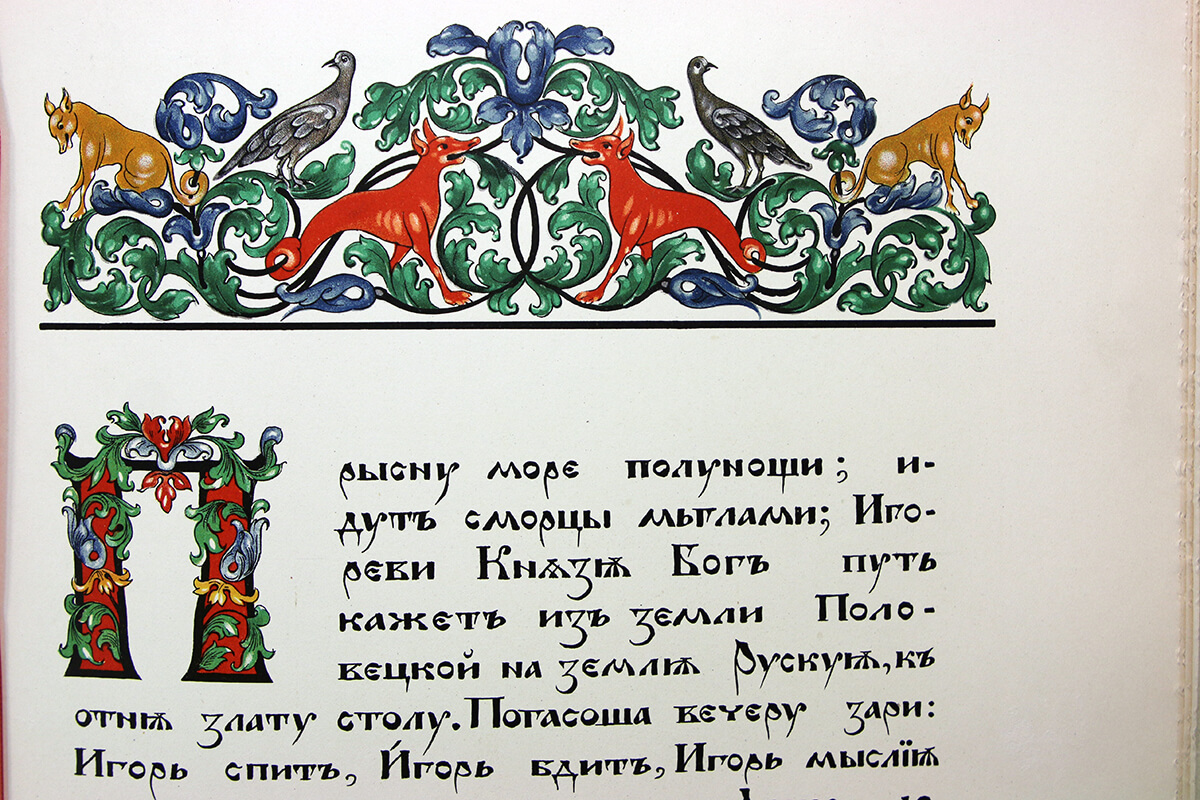 Прысну море полунощи; и-
дутъ сморцы мьглами; Иго-
реви Княѕѭ Богъ путь
кажетъ изъ земли Поло-
вецкой на землѭ Рускуѭ, къ
отнѭ злату столу. Погасоша вечеру зари:
Игорь спитъ, И́горь бдитъ, Игорь мыслїѭ